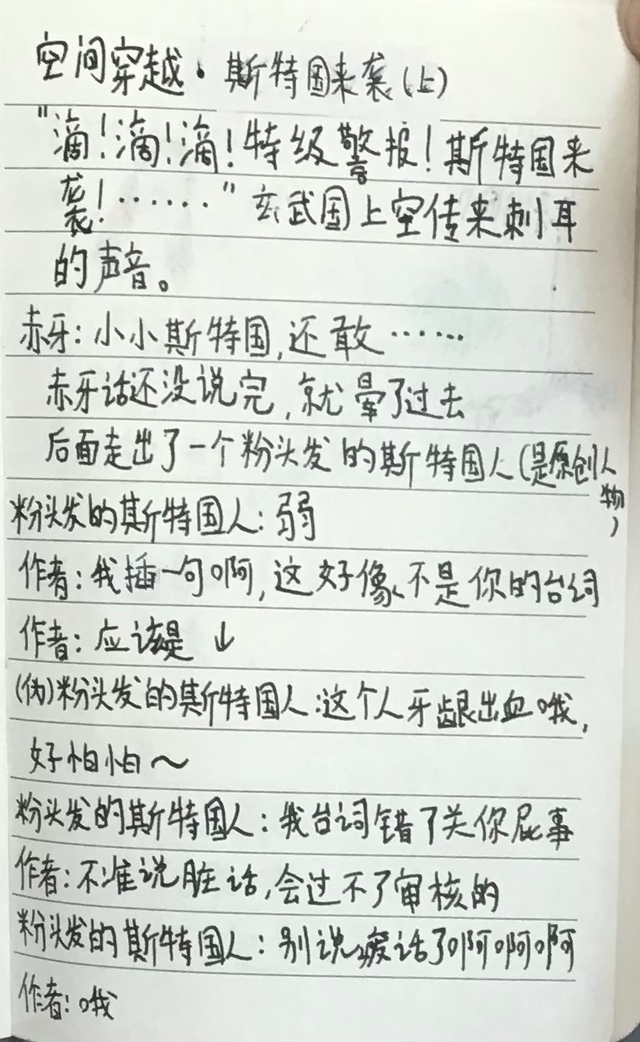 空间穿越·斯特国来袭(上)
"滴!滴!滴!特级警报!斯特国来
袭!……"玄武国上空传来刺耳
的声音。
赤牙:小小斯特国,还敢……
赤牙话还没说完,就晕了过去
后面走出了一个粉头发的斯特国人(是原创人
物)
粉头发的斯特国人:弱
作者:我插一句啊,这好像不是你的台词
作者:应该是↓
(伪)粉头发的斯特国人:这个人牙龈出血哦,
好怕怕~
粉头发的斯特国人:我台词错了关你屁事
作者:不准说脏话,会过不了审核的
粉头发的斯特国人:别说废话了啊啊啊
作者:哦